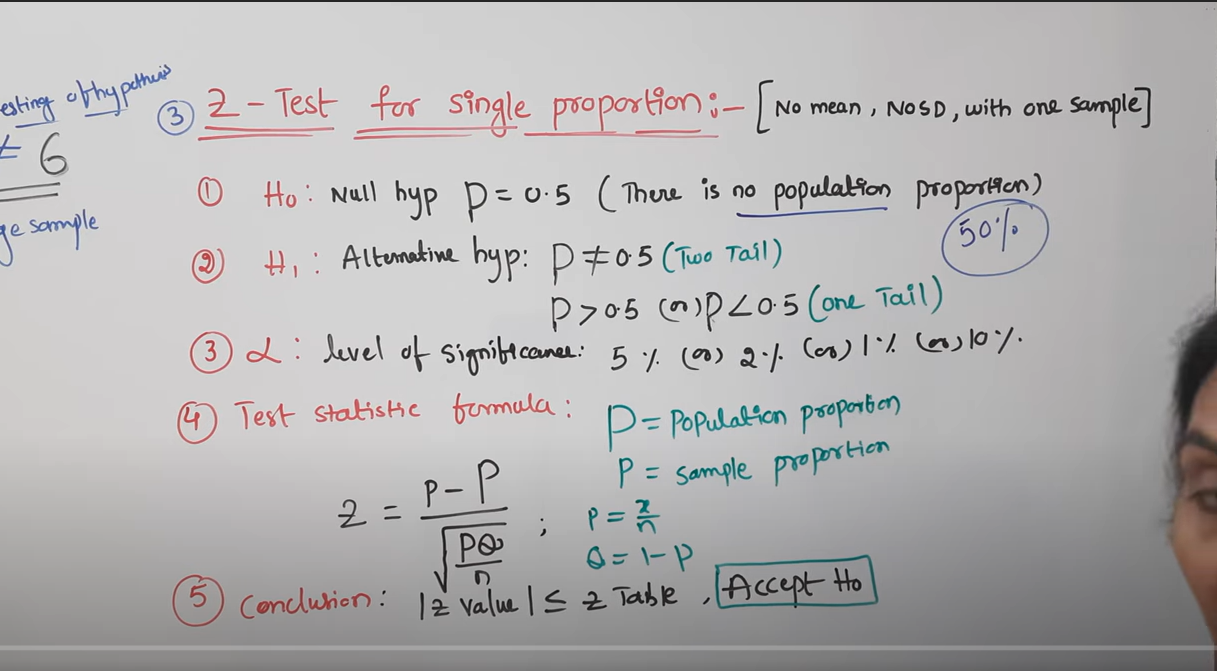 esting of hypothesis
③ Z - Test for single proportion:- [No mean, NO SD, with one sample]
≠ 6
ge sample
① H₀: Null hyp P = 0.5 (There is no population proportion)
50%
② H₁: Alternative hyp: P ≠ 0.5 (Two Tail)
P > 0.5 (or) P < 0.5 (one Tail)
③ α: level of significance: 5 % (or) 2 % (or) 1 % (or) 10 %.
④ Test statistic formula:
P = Population proportion
p = sample proportion
Z = (p - P) / √(PQ/n) ; p = x/n
Q = 1 - P
⑤ Conclusion: |Z value| ≤ Z Table, Accept H₀